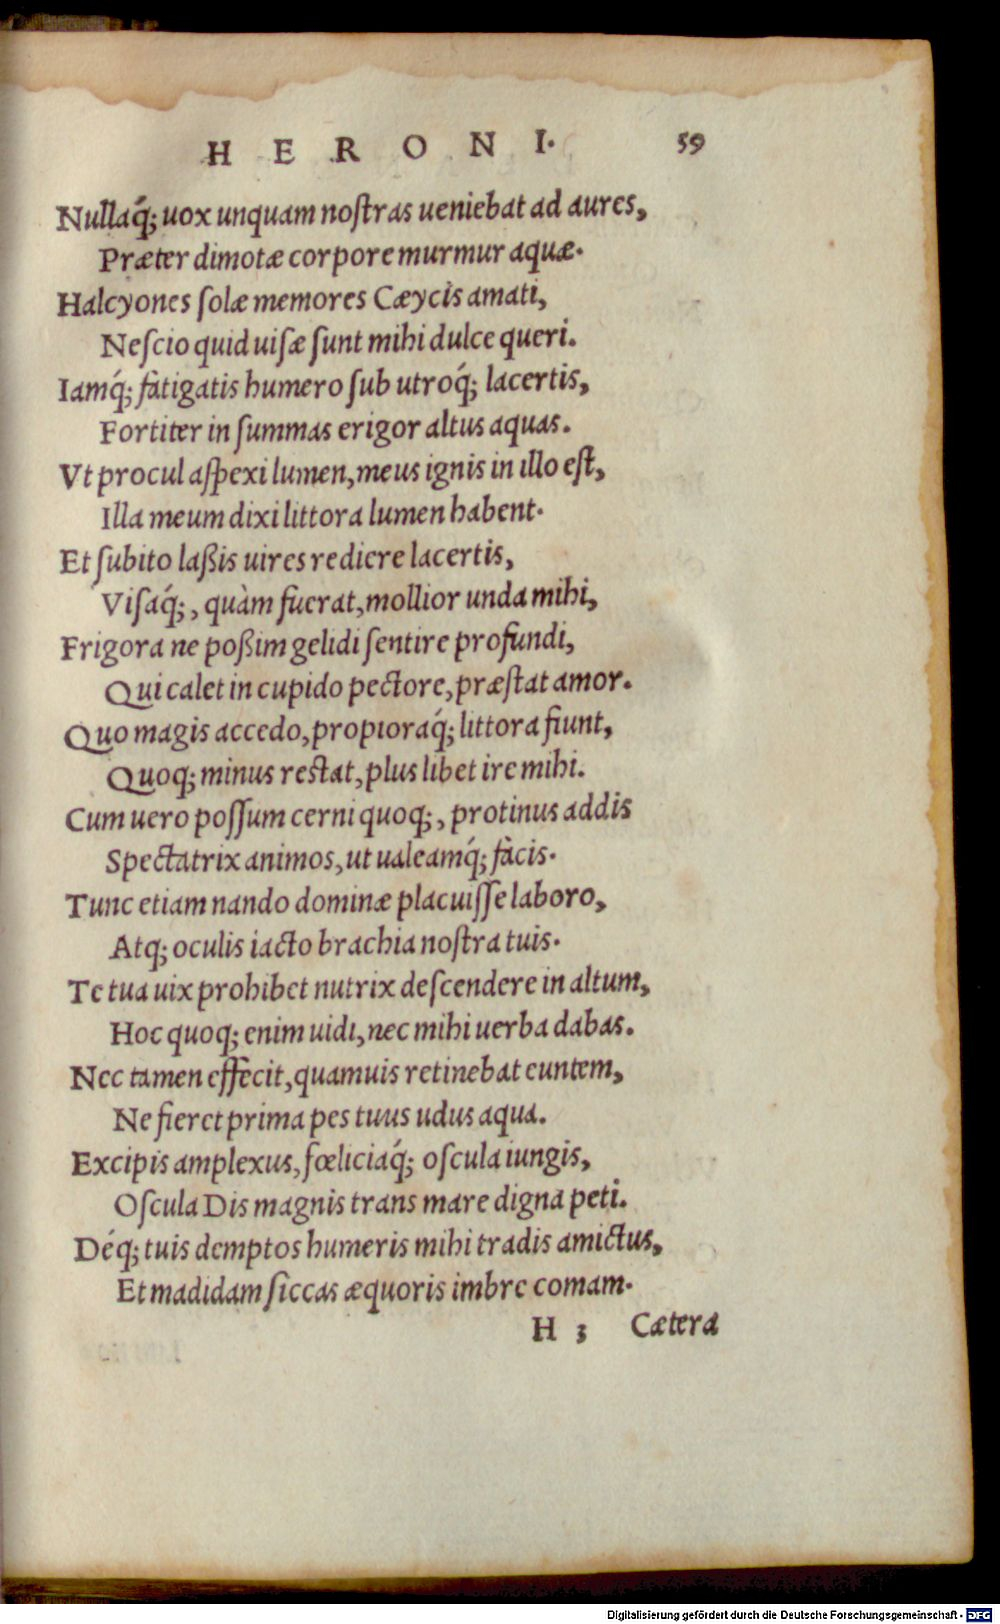 HERONI. 59
Nullaq́; uox unquam noſtras ueniebat ad aures,
Præter dimotæ corpore murmur aquæ.
Halcyones ſolæ memores Cæycis amati,
Neſcio quid uiſæ ſunt mihi dulce queri.
Iamq́; fatigatis humero ſub utroq́; lacertis,
Fortiter in ſummas erigor altus aquas.
Vt procul aſpexi lumen, meus ignis in illo eſt,
Illa meum dixi littora lumen habent.
Et ſubito laßis uires rediere lacertis,
Viſaq́;, quàm fuerat, mollior unda mihi,
Frigora ne poßim gelidi ſentire profundi,
Qui calet in cupido pectore, præſtat amor.
Quo magis accedo, propioraq́; littora fiunt,
Quoq; minus reſtat, plus libet ire mihi.
Cum uero poſſum cerni quoq;, protinus addis
Spectatrix animos, ut ualeamq́; facis.
Tunc etiam nando dominæ placuiſſe laboro,
Atq; oculis iacto brachia noſtra tuis.
Te tua uix prohibet nutrix deſcendere in altum,
Hoc quoq; enim uidi, nec mihi uerba dabas.
Nec tamen effecit, quamuis retinebat euntem,
Ne fieret prima pes tuus udus aqua.
Excipis amplexus, fœliciaq́; oſcula iungis,
Oſcula Dis magnis trans mare digna peti.
Déq; tuis demptos humeris mihi tradis amictus,
Et madidam ſiccas æquoris imbre comam.
H 3 Cætera
Digitalisierung gefördert durch die Deutsche Forschungsgemeinschaft - DFG